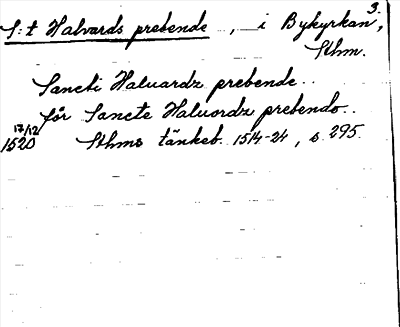 3.
S:t Halvards prebende , i Bykyrkan,
Sthm.
Sancti Haluardz prebende..
för Sancte Haluordz prebendo..
17/12 1520 Sthms tänkeb. 1514-24, s. 295.